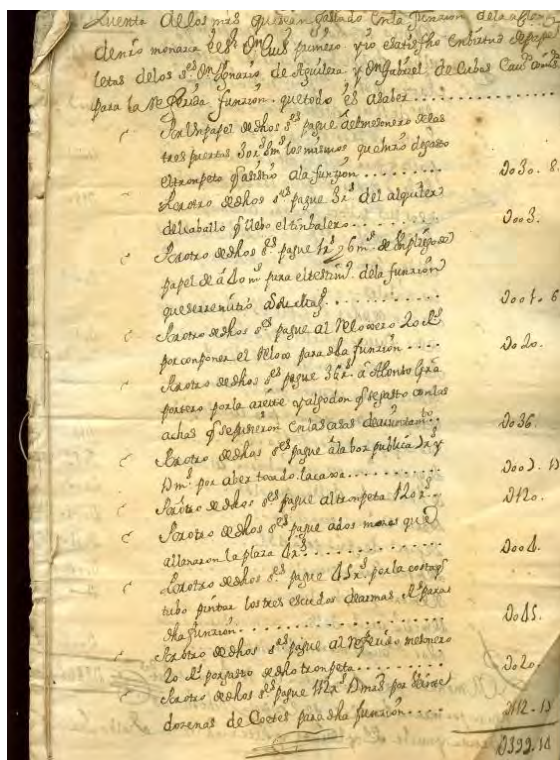 Quenta de los mrs que se an gastado en la funzion de la
de nro monarca el sr Dn Luis primero y io e satisfho en birtud de pape
letas de los ss.es Dn de Aguilera y Dn Gabriel de Cubas Cavs
para la referida funzion. que todo es a saber
Por Un papel de dhos s.es pagué al mesonero de las
tres puertas 30 rs 8 ms los mismos que hizo de gasto
el tronpeta q asistio a la funzion Do30. 8
Por otro de dhos s.es pague 3 rs del alquiler
del caballo q llebo el tinbalero Doo3.
Por otro de dhos s.es pague 1 rs y 6 ms de
papel de a 40 ms para el testimo de la funzion
que se remitio Doo1. 6
Por otro de dhos s.es pague al Reloxero 20 Rs
por conponer el Relox para dha funzion Do20.
Por otro de dhos s.es pague 36 rs a Alonso Gra
portero por la azeite y algodon q se gasto con las
achas q se pusieron en las casas de aiuntamto Do36.
Por otro de dhos s.es pague a la boz publica rs y
ms por aber tocado la caxa
Por otro de dhos s.es pague al tronpeta 120 rs D120.
Por otro de dhos s.es pague a dos mozos que
allanaron la plaza 4 rs Doo4.
Por otro de dhos s.es pague 45 rs por la costa q
tubo pintar los tres escudos de armas Rs para
dha funzion Do45.
Por otro de dhos s.es pague al referido mesonero
20 Rs por gasto de dho tronpeta Do20.
Por otro de dhos s.es pague 112 rs ms por
dozenas de Coetes para dha funzion